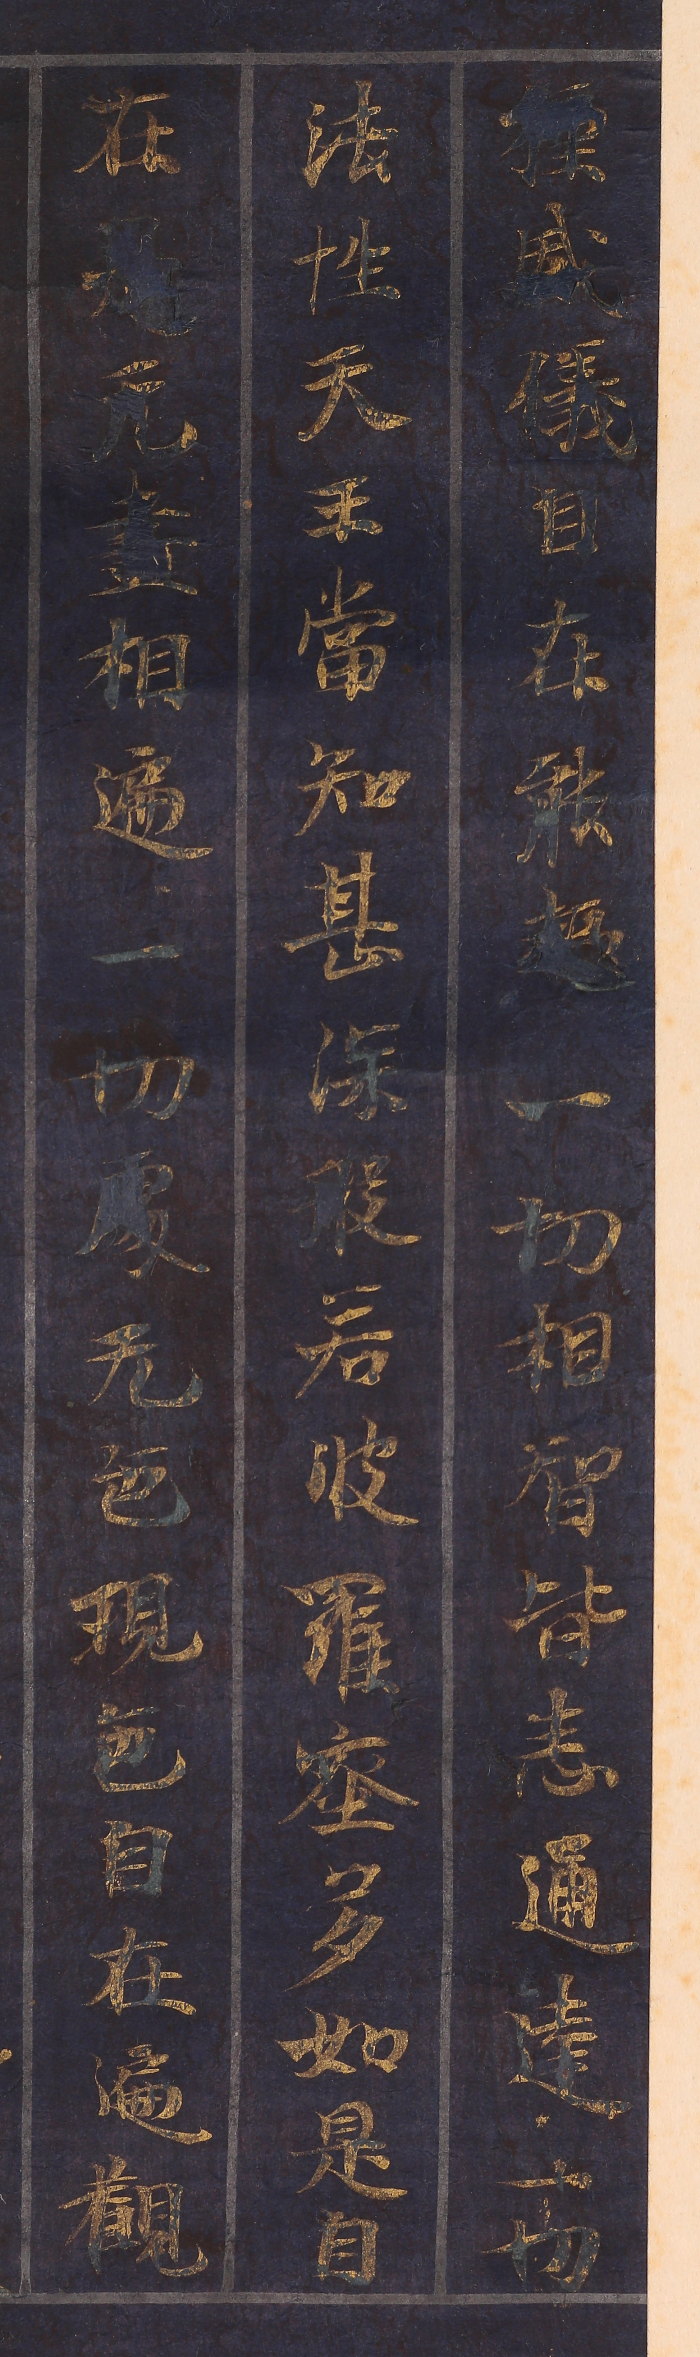 種威儀自在能趣一切相智皆悉通達一切
法性天王當知甚深般若波羅蜜多如是自
在是无盡相遍一切處无色現色自在遍觀